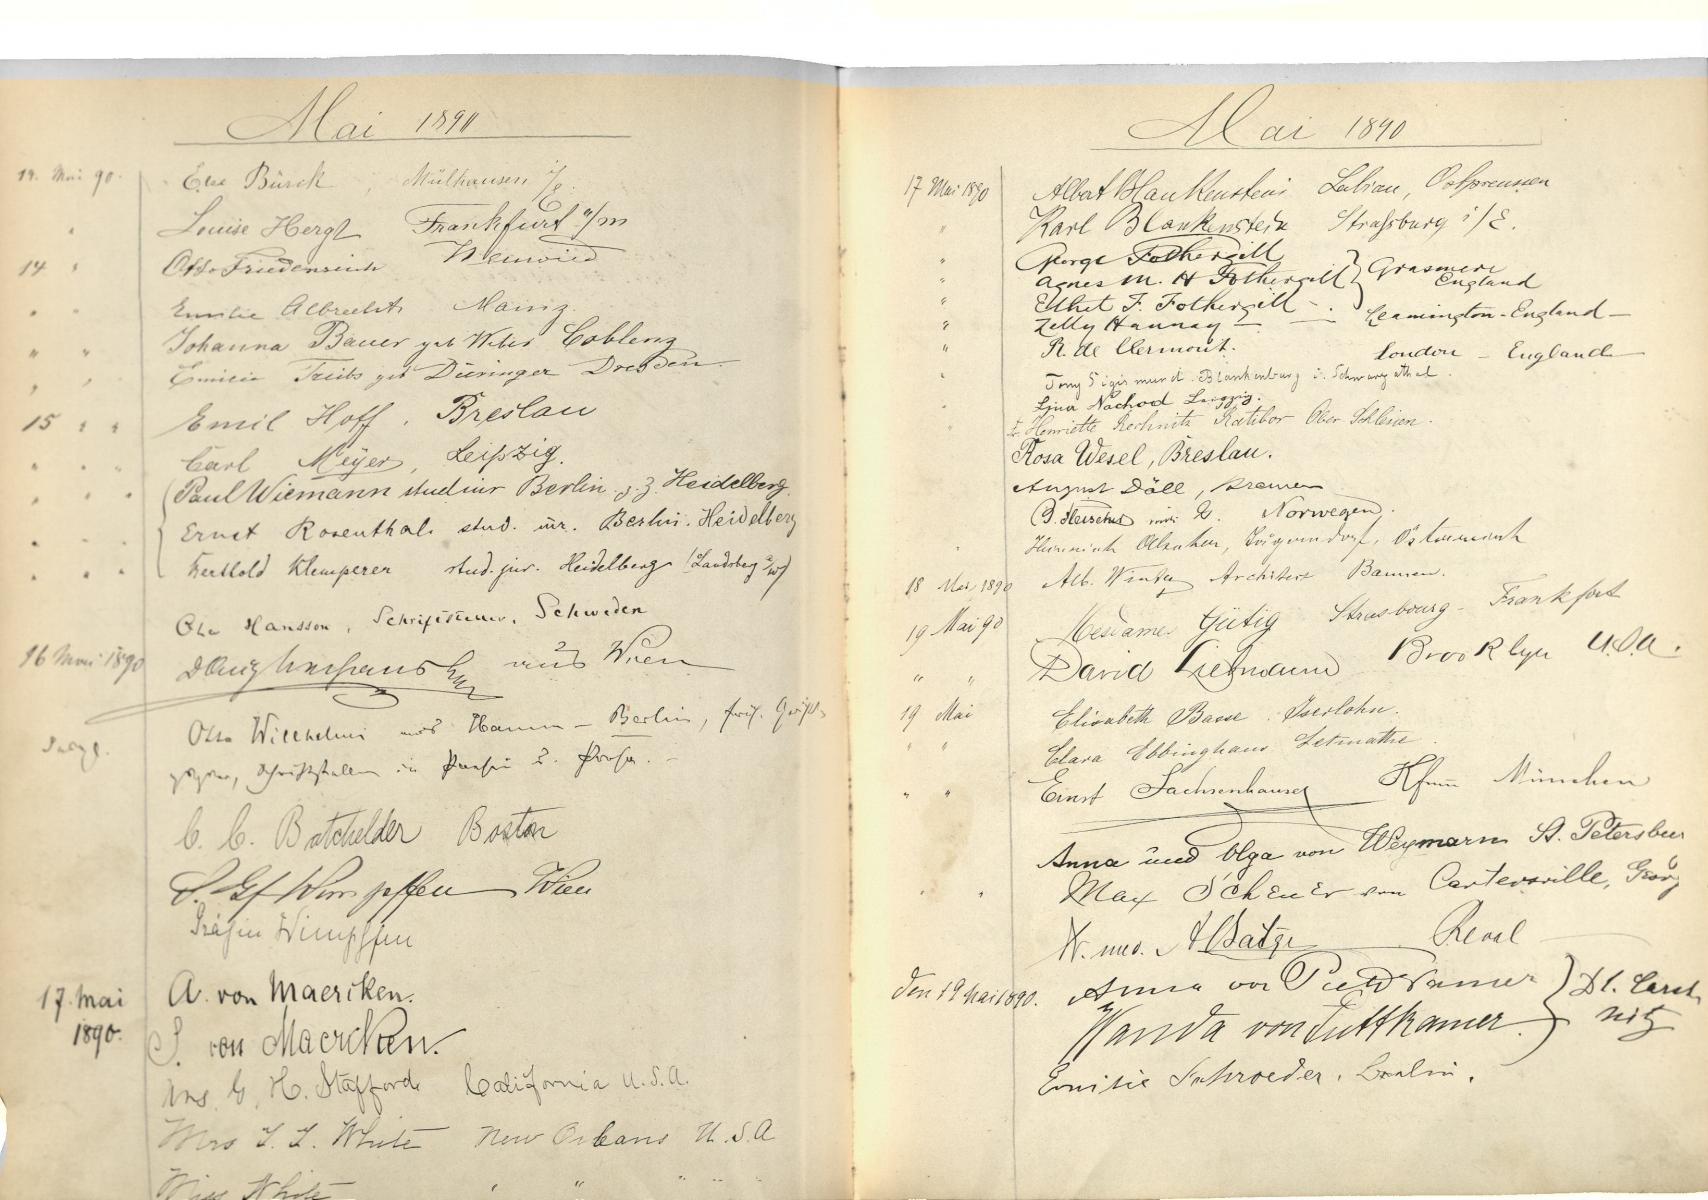 Mai 1890
14. Mai 90. Else Bürck, Mülhausen i/E.
" Louise Hergt Frankfurt a/m
14 " Otto Friedenreich Neuwied
" " Emilie Albrecht Mainz.
" " Johanna Bauer geb Weber Coblenz
" " Emilie Treibs geb Düringer Dresden.
15 " " Emil Hoff, Breslau
" " " Carl Meÿer, Leipzig.
" " " Paul Wiemann stud iur Berlin z. Z. Heidelberg.
" " " Ernst Rosenthal. stud. iur. Berlin. Heidelberg
" " " Berthold Klemperer stud. jur. Heidelberg (Landsberg a/W)
Ola Hansson, Schriftsteller, Schweden
16 Mai 1890 aus Wien
Otto Wilhelmi aus Hamm – Berlin,
C. C. Batchelder Boston
Wimpffen Wien
Gräfin Wimpffen
17. Mai A. von Maercken.
1890. S. von Maercken.
Mrs G. H. Stafford California U.S.A.
Mrs T. L. White New Orleans U.S.A
Miss White " " " "
Mai 1890
17 Mai 1890 Albert Blankenstein Labiau, Ostpreussen
" Karl Blankenstein Straßburg i/E.
" George Fothergill
" Agnes M. H Fothergill Grasmere England
" Ethel F. Fothergill
" Zelly Hannay Leamington - England
" R. de Clermont. London - England
" Tony Sigismund. Blankenburg i. Schwarzathal.
" Lina Nachod Leipzig.
" Fr. Henriette Rechnitz Ratibor Ober Schlesien.
Rosa Wesel, Breslau.
August Döll, Bremen
Norwegen.
" Österreich
18 Mai 1890 Alb. Winter Architect Barmen.
19 Mai 90 Mesdames Gütig Strasbourg - Frankfort
" " David Liebmann Brooklyn U.S.A.
19 Mai Elisabeth Basse. Iserlohn.
" " Clara Ebbinghaus Letmathe.
" " Ernst Sachsenhauser Kfm München
Anna und Olga von Weymarn St. Petersburg
" " Max Scheuer von Cartersville, Georg
Reval
den 19 Mai 1890. Anna von Puttkamer
Wanda von Puttkamer.
Emilie Schroeder. Berlin.